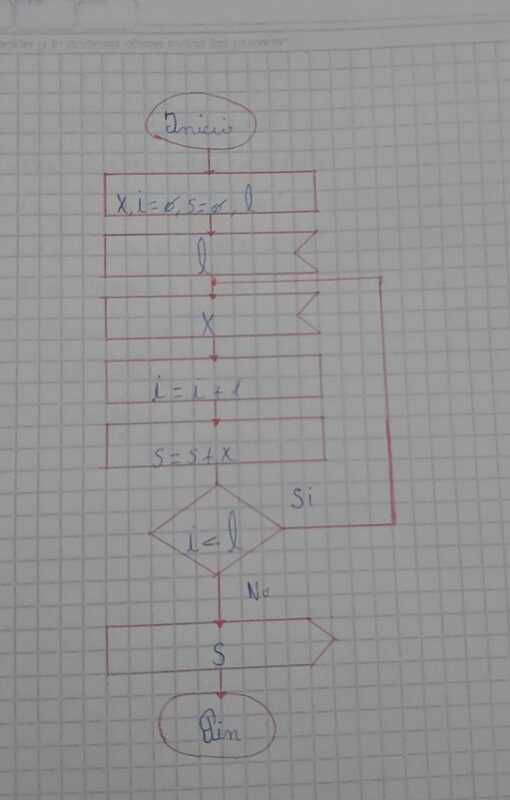 Inicio
X, i=ø, s=ø, l
l
X
i = i + 1
s = s + x
i < l
Si
No
S
Fin